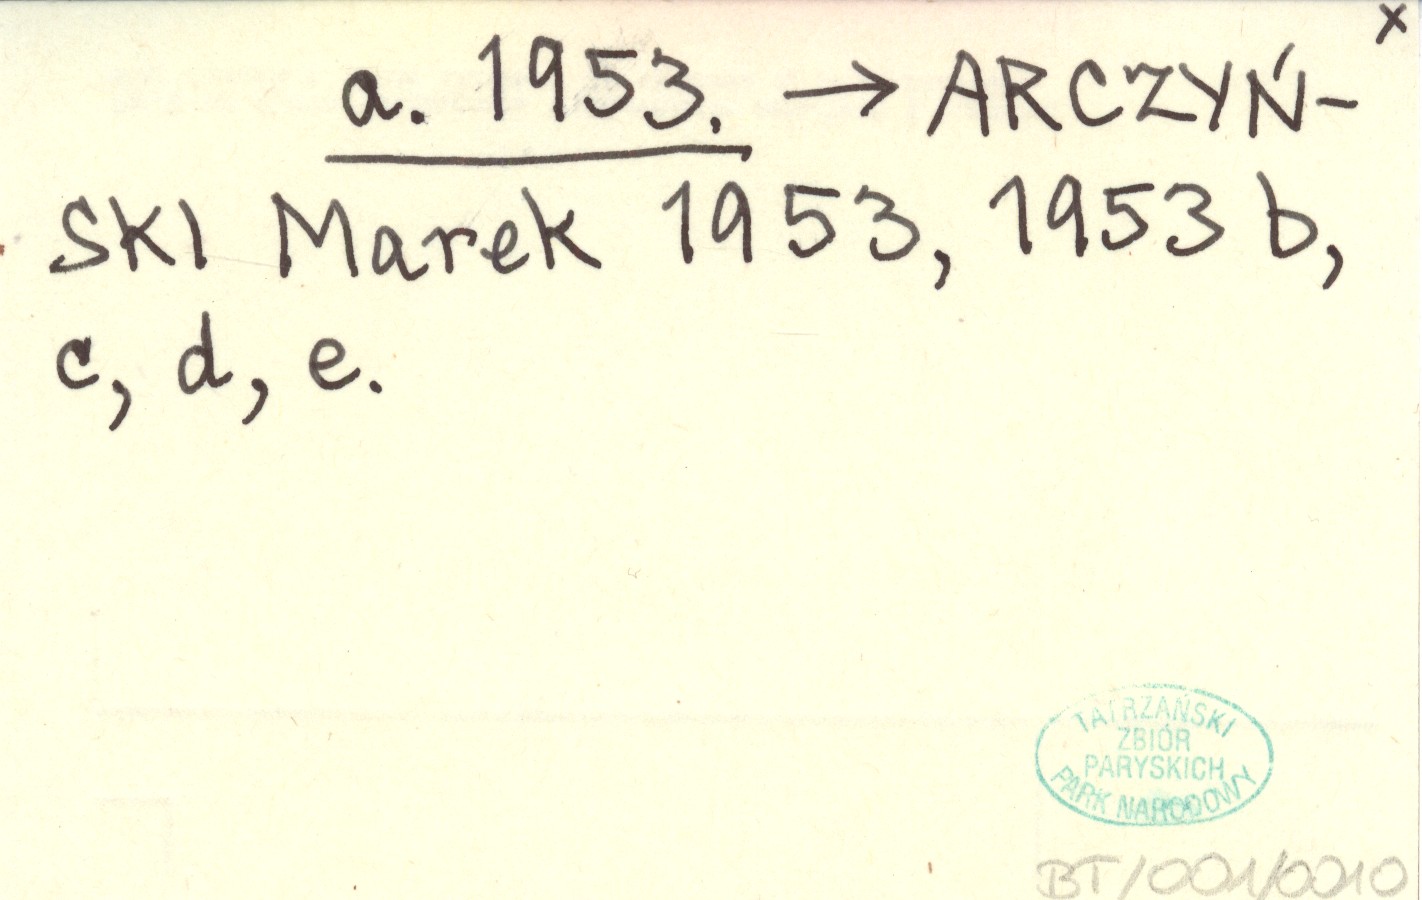 x
a. 1953. → ARCZYŃ-
SKI Marek 1953, 1953 b,
c, d, e.
TATRZAŃSKI
ZBIÓR
PARYSKICH
PARK NARODOWY
BT/001/0010